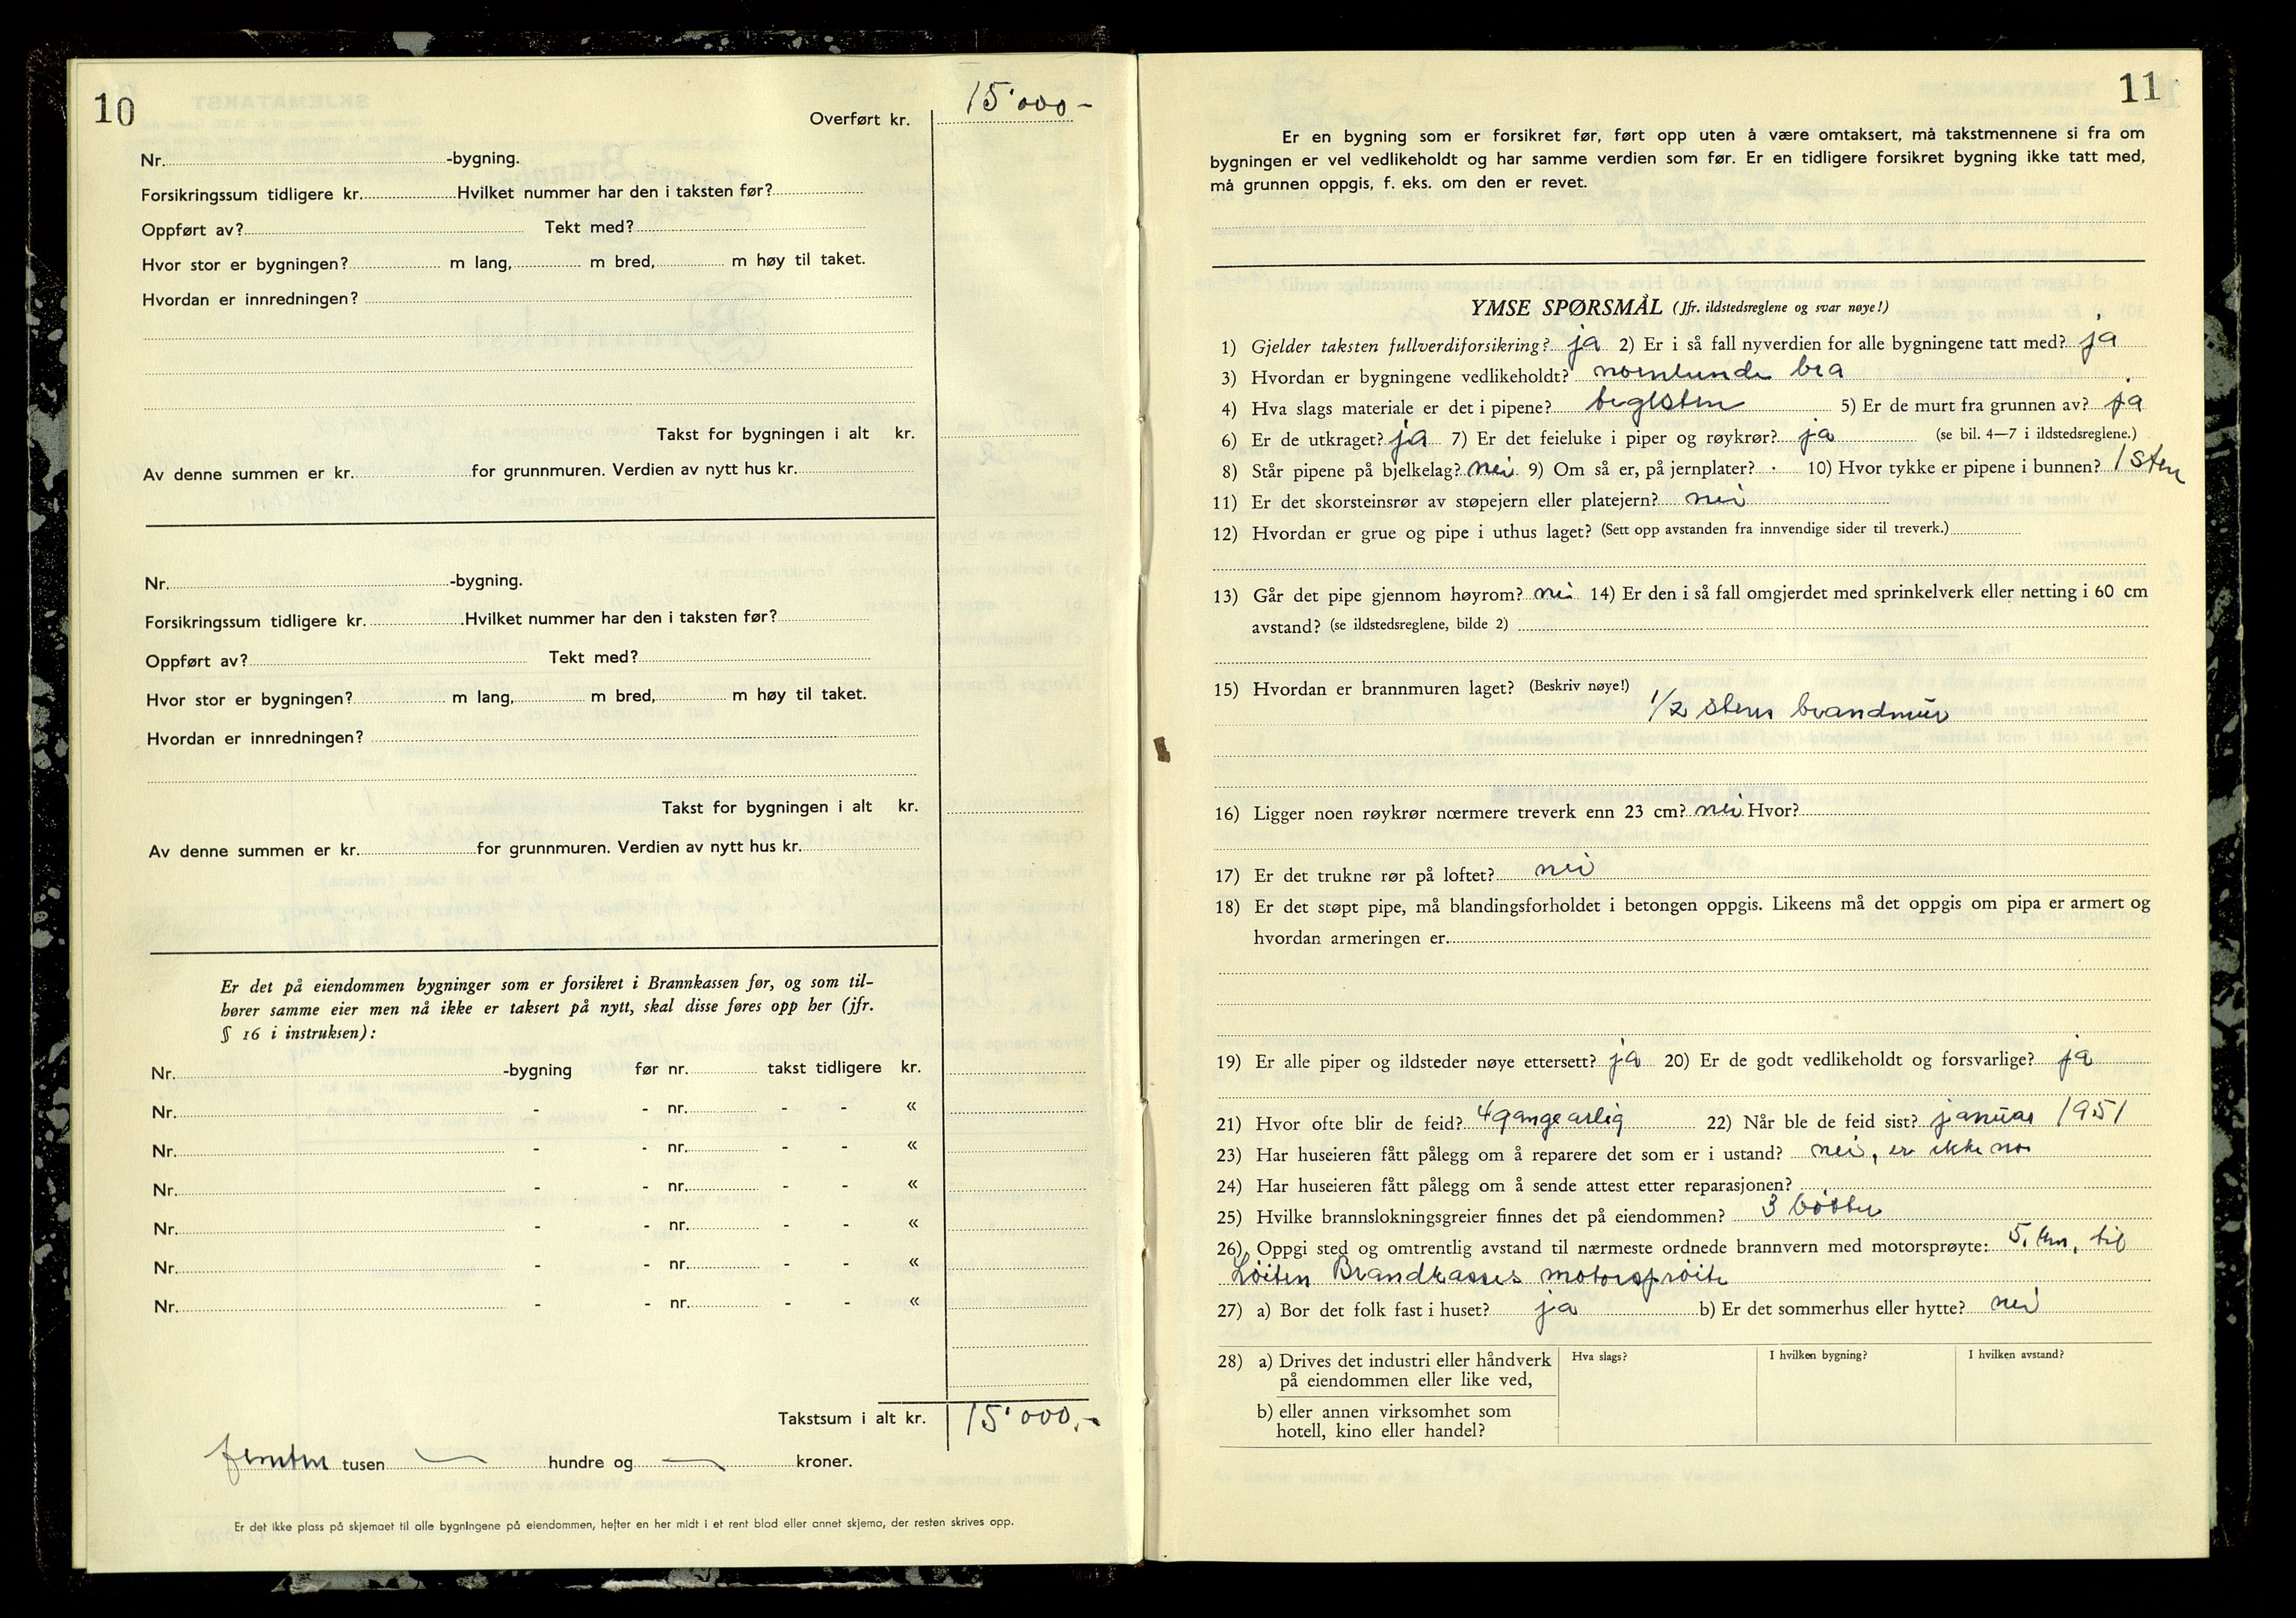 10
Overført kr. 15'000,-
Nr. -bygning.
Forsikringssum tidligere kr. Hvilket nummer har den i taksten før?
Oppført av? Tekt med?
Hvor stor er bygningen? m lang, m bred, m høy til taket.
Hvordan er innredningen?
Takst for bygningen i alt kr.
Av denne summen er kr. for grunnmuren. Verdien av nytt hus kr.
Nr. -bygning.
Forsikringssum tidligere kr. Hvilket nummer har den i taksten før?
Oppført av? Tekt med?
Hvor stor er bygningen? m lang, m bred, m høy til taket.
Hvordan er innredningen?
Takst for bygningen i alt kr.
Av denne summen er kr. for grunnmuren. Verdien av nytt hus kr.
Er det på eiendommen bygninger som er forsikret i Brannkassen før, og som til-
hører samme eier men nå ikke er taksert på nytt, skal disse føres opp her (jfr.
§ 16 i instruksen):
Nr. -bygning før nr. takst tidligere kr.
Nr. - - nr. - - «
Nr. - - nr. - - «
Nr. - - nr. - - «
Nr. - - nr. - - «
Nr. - - nr. - - «
Nr. - - nr. - - «
Takstsum i alt kr. 15'000,-
femten tusen — hundre og — kroner.
Er det ikke plass på skjemaet til alle bygningene på eiendommen, hefter en her midt i et rent blad eller annet skjema, der resten skrives opp.
11
Er en bygning som er forsikret før, ført opp uten å være omtaksert, må takstmennene si fra om
bygningen er vel vedlikeholdt og har samme verdien som før. Er en tidligere forsikret bygning ikke tatt med,
må grunnen oppgis, f. eks. om den er revet.
YMSE SPØRSMÅL (Jfr. ildstedsreglene og svar nøye!)
1) Gjelder taksten fullverdiforsikring? ja 2) Er i så fall nyverdien for alle bygningene tatt med? ja
3) Hvordan er bygningene vedlikeholdt? nornlunde bra
4) Hva slags materiale er det i pipene? teglsten 5) Er de murt fra grunnen av? ja
6) Er de utkraget? ja 7) Er det feieluke i piper og røykrør? ja (se bil. 4—7 i ildstedsreglene.)
8) Står pipene på bjelkelag? nei 9) Om så er, på jernplater? 10) Hvor tykke er pipene i bunnen? 1 sten
11) Er det skorsteinsrør av støpejern eller platejern? nei
12) Hvordan er grue og pipe i uthus laget? (Sett opp avstanden fra innvendige sider til treverk.)
13) Går det pipe gjennom høyrom? nei 14) Er den i så fall omgjerdet med sprinkelverk eller netting i 60 cm
avstand? (se ildstedsreglene, bilde 2)
15) Hvordan er brannmuren laget? (Beskriv nøye!) 1/2 stens brandmur
16) Ligger noen røykrør nærmere treverk enn 23 cm? nei Hvor?
17) Er det trukne rør på loftet? nei
18) Er det støpt pipe, må blandingsforholdet i betongen oppgis. Likeens må det oppgis om pipa er armert og
hvordan armeringen er.
19) Er alle piper og ildsteder nøye ettersett? ja 20) Er de godt vedlikeholdt og forsvarlige? ja
21) Hvor ofte blir de feid? 4 gange årlig 22) Når ble de feid sist? januar 1951
23) Har huseieren fått pålegg om å reparere det som er i ustand? nei, er ikke no
24) Har huseieren fått pålegg om å sende attest etter reparasjonen?
25) Hvilke brannslokningsgreier finnes det på eiendommen? 3 bøtter
26) Oppgi sted og omtrentlig avstand til nærmeste ordnede brannvern med motorsprøyte: 5. km. til
Løiten Brandkasses motorsprøite
27) a) Bor det folk fast i huset? ja b) Er det sommerhus eller hytte? nei
28) a) Drives det industri eller håndverk Hva slags? I hvilken bygning? I hvilken avstand?
på eiendommen eller like ved,
b) eller annen virksomhet som
hotell, kino eller handel?